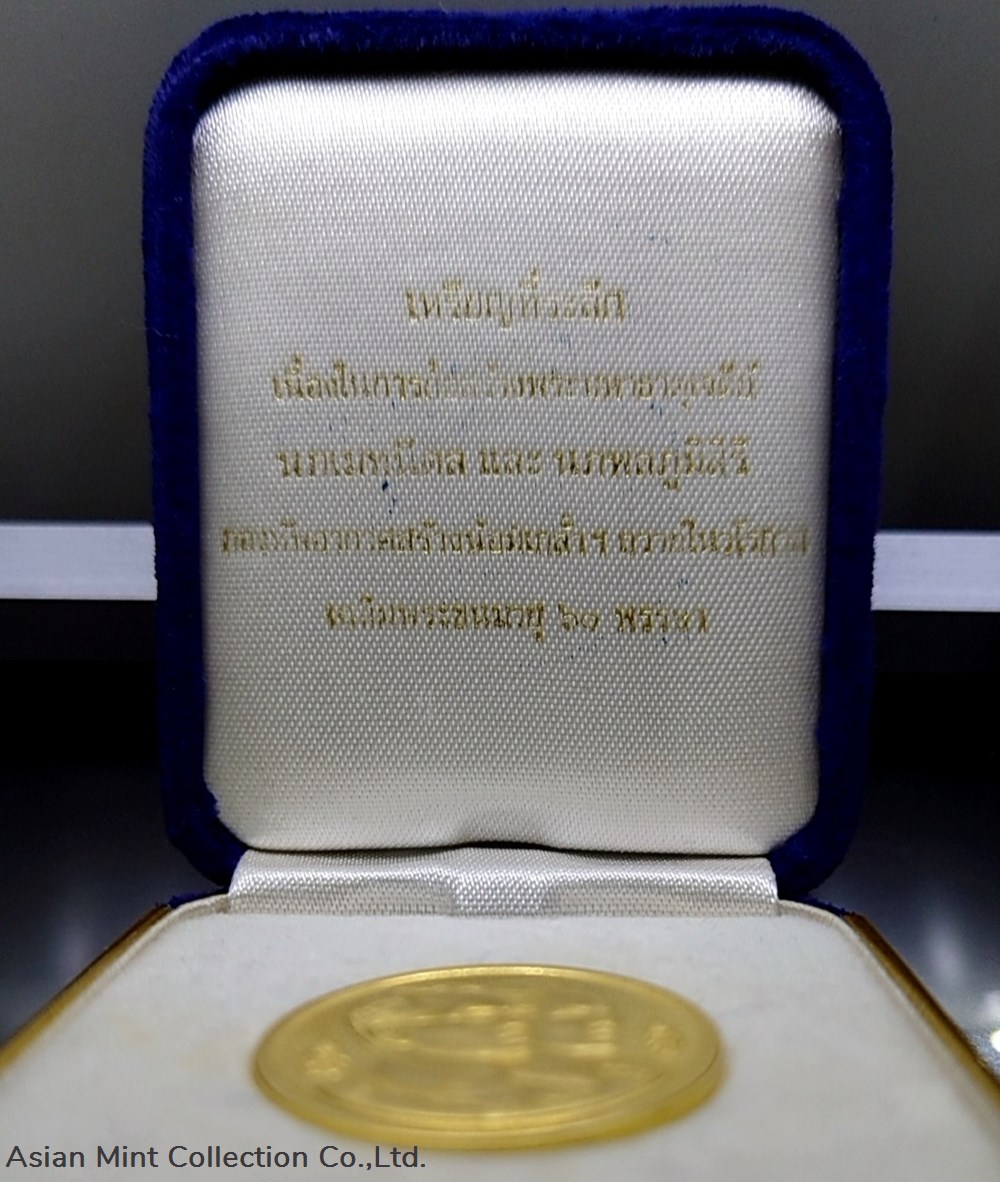 เหรียญที่ระลึก
เนื่องในการก่อสร้างพระมหาธาตุเจดีย์
นภเมทนีดล และ นภพลภูมิสิริ
กองทัพอากาศสร้างน้อมเกล้าฯ ถวายในวโรกาส
เฉลิมพระชนมายุ ๖๐ พรรษา
Asian Mint Collection Co.,Ltd.